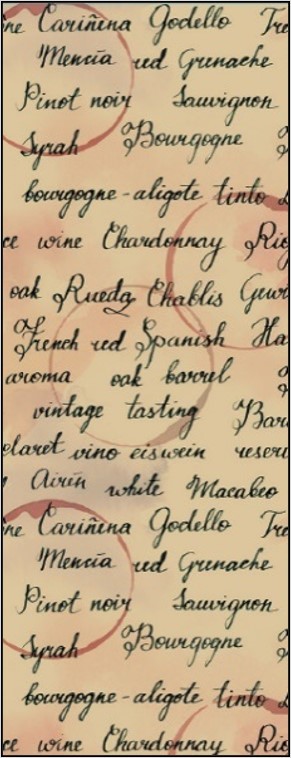 ne Cariñena Godello Tre
Mencía red Grenache
Pinot noir Sauvignon
Syrah Bourgogne
bourgogne-aligote tinto
ce wine Chardonnay Rio
oak Rueda Chablis Gewu
French red Spanish Ha
aroma oak barrel
vintage tasting Bar
claret vino eiswein reserv
Airén white Macabeo
ne Cariñena Godello Tre
Mencía red Grenache
Pinot noir Sauvignon
Syrah Bourgogne
bourgogne-aligote tinto
ce wine Chardonnay Rio